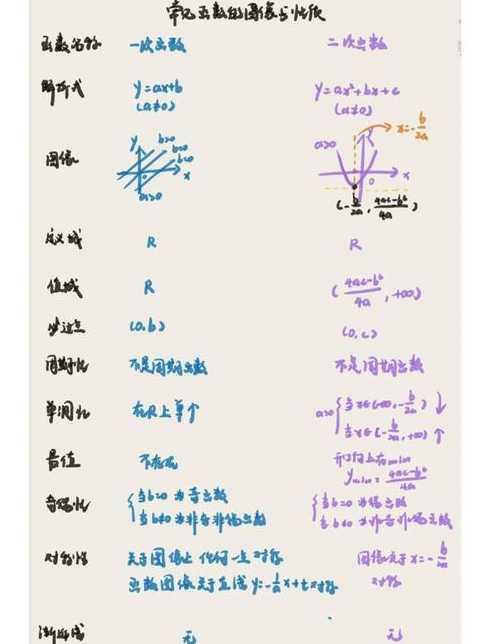 常见函数的图像与性质
函数名称 一次函数 二次函数
解析式 y=ax+b y=ax²+bx+c
(a≠0) (a≠0)
图像 y b>0 b=0 b<0 x 0 a>0 a>0 x=-b/2a x 0
(-b/2a, 4ac-b²/4a)
定义域 R R
值域 R (4ac-b²/4a, +∞)
必过点 (0,b) (0,c)
周期性 不是周期函数 不是周期函数
单调性 在R上单个 a>0 { 当x∈(-∞,-b/2a) ↓
当x∈(-b/2a,+∞) ↑
最值 不存在 开口向上有min
ymin=4ac-b²/4a
奇偶性 { 当b=0 为奇函数 { 当b=0 为偶函数
当b≠0 为非奇非偶函数 当b≠0 为非奇非偶函数
对称性 关于图像上任何一点对称 图像关于x=-b/2a
函数图像关于直线y=-1/a x+t对称 对称
渐近线 无 无